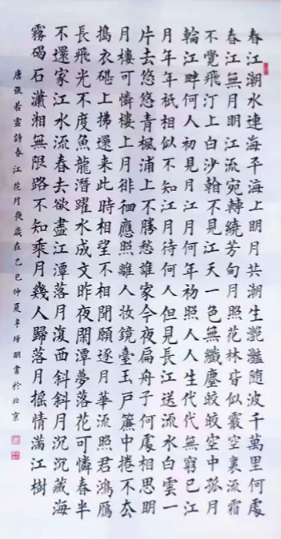 春江潮水連海平海上明月共潮生灩灩隨波千萬里何處
春江無月明江流宛轉繞芳甸月照花林皆似霰空裏流霜
不覺飛汀上白沙看不見江天一色無纖塵皎皎空中孤月
輪江畔何人初見月江月何年初照人人生代代無窮已江
月年年祇相似不知江月待何人但見長江送流水白雲一
片去悠悠青楓浦上不勝愁誰家今夜扁舟子何處相思明
月樓可憐樓上月徘徊應照離人妝鏡臺玉戶簾中捲不去
搗衣砧上拂還來此時相望不相聞願逐月華流照君鴻雁
長飛光不度魚龍潛躍水成文昨夜閑潭夢落花可憐春半
不還家江水流春去欲盡江潭落月復西斜斜月沉沉藏海
霧碣石瀟湘無限路不知乘月幾人歸落月搖情滿江樹
唐張若虛詩春江花月夜歲在己巳仲夏明書於北京